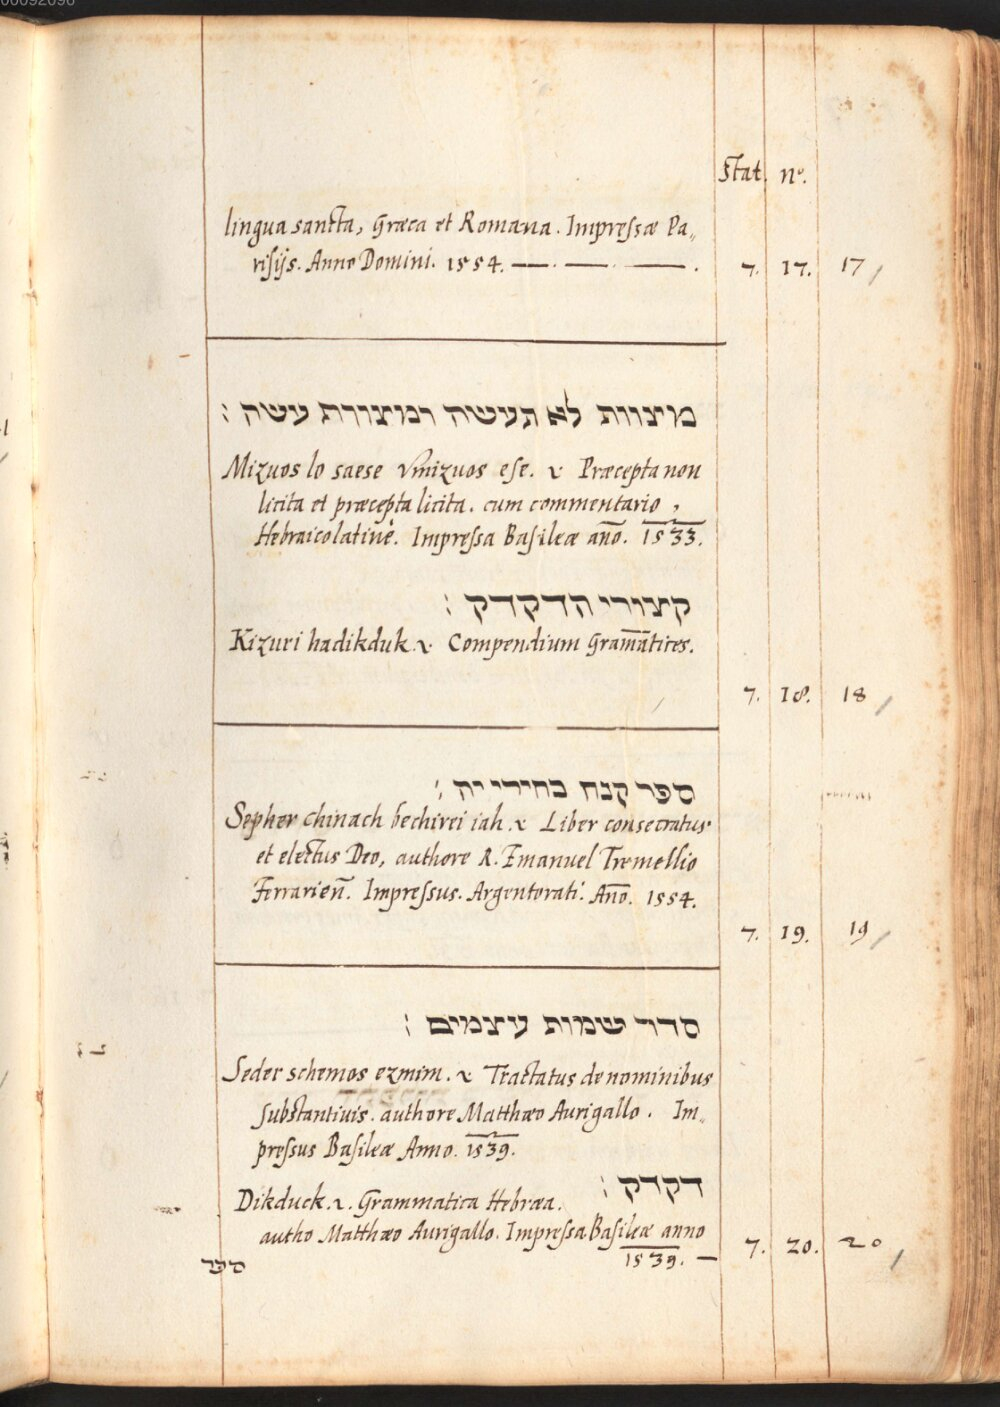 00092098
Stat. nº.
lingua sancta, Græca et Romana. Impressæ Pa„
risijs. Anno Domini. 1554. —. —— . —— . 7. 17. 17
מיצוות לא תעשה ומיצוות עשה :
Mizuos lo saese vmizuos ese. Præcepta non
licita et præcepta licita. cum commentario,
Hebraicolatinè. Impressa Basileæ año. 1533.
קיצורי הדקדק :
Kizuri hadikduk. Compendium Gramātices.
7. 18. 18
ספר קנח בחירי יה :
Sepher chinach bechirei iah. Liber consecratus
et electus Deo, authore R. Emanuel Tremellio
Ferrarien̄. Impressus. Argentorati. Año. 1554.
7. 19. 19
סדר שמות עיצמים :
Seder schemos ezmim. Tractatus de nominibus
substantiuis. authore Matthæo Aurigallo. Im„
pressus Basileæ Anno. 1539.
דקדק :
Dikduck. Grammatica Hebræa.
autho Matthæo Aurigallo. Impressa Basileæ anno 7. 20. 20
1539. —
ספר